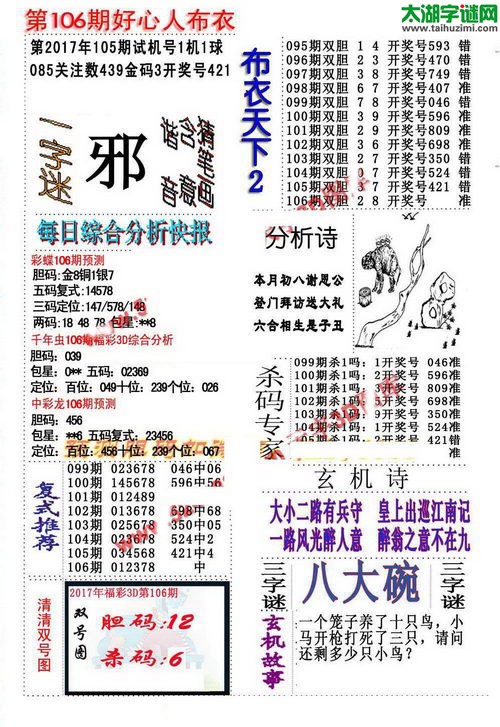 第106期好心人布衣
太湖字谜网
www.taihuzimi.com
第2017年105期试机号1机1球
085关注数439金码3开奖号421
一字迷
邪
猜笔画
含意
谐音
每日综合分析快报
彩蝶106期预测
胆码:金8铜1银7
五码复式:14578
三码定位:147/578/148
两码:18 48 78 包星:**8
千年虫106期福彩3D综合分析
胆码: 039
包星: 0** 五码: 02369
定位: 百位: 049十位: 239个位: 026
中彩龙106期预测
胆码: 456
包星: **6 五码复式: 23456
定位: 百位: 456十位: 239个位: 067
复式推荐
099期 023678 046中06
100期 145678 596中56
101期 012489
102期 013678 698中68
103期 025678 350中05
104期 012345 524中524
105期 034568 421中4
106期 012378 中
清清双号图
2017年福彩3D第106期
双号图
胆码:12
杀码:6
布衣天下2
095期双胆 1 4 开奖号593 错
096期双胆 2 3 开奖号470 错
097期双胆 3 8 开奖号749 错
098期双胆 4 7 开奖号407 准
099期双胆 7 8 开奖号046 错
100期双胆 5 6 开奖号596 准
101期双胆 2 9 开奖号809 准
102期双胆 3 4 开奖号698 错
103期双胆 2 7 开奖号350 错
104期双胆 0 5 开奖号524 准
105期双胆 0 7 开奖号421 错
106期双胆 2 8 开奖号 准
分析诗
本月初八谢恩公
登门拜访送大礼
六合相生是子丑
杀码专家
099期杀1吗: 1开奖号 046准
100期杀1吗: 1开奖号 596准
101期杀1吗: 3开奖号 809准
102期杀1码: 5开奖号 698准
103期杀1吗: 9开奖号 350准
104期杀1码: 0开奖号 524准
105期杀1码: 2开奖号 421错
玄机诗
大小二路有兵守 皇上出巡江南记
一路风光醉人意 醉翁之意不在九
三字谜
八大碗
三字谜
玄机故事
一个笼子养了十只鸟，小
马开枪打死了三只，请问
还剩多少只小鸟？